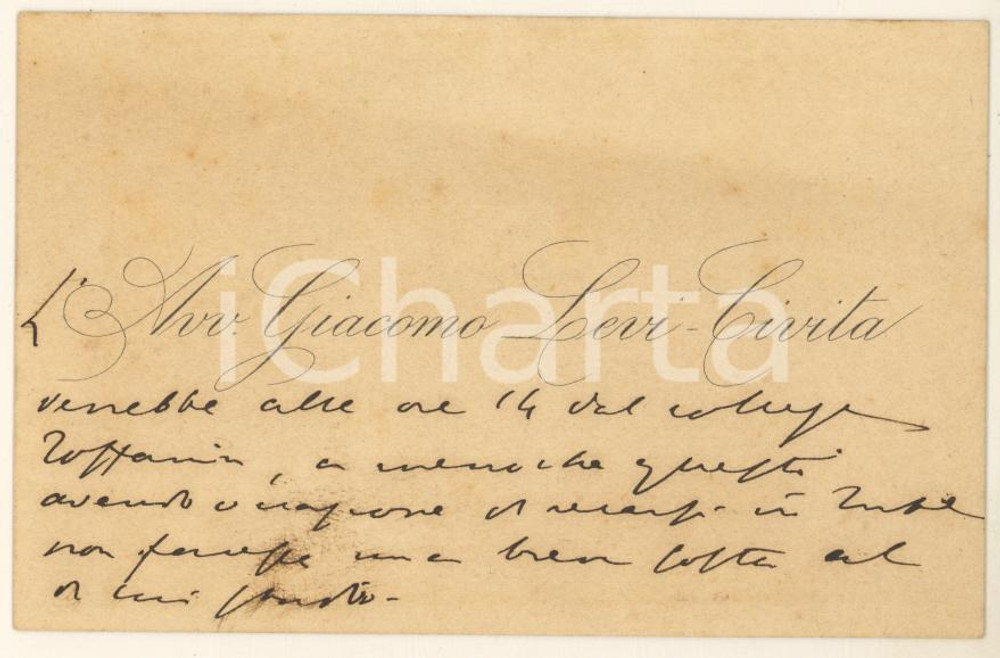 L' Avv. Giacomo Levi-Civita
verrebbe alle ore 14 dal collega
Toffanin, a meno che questi
avendo occasione di recarsi in
non facesse una breve sosta al
di lui studio.
iCharta